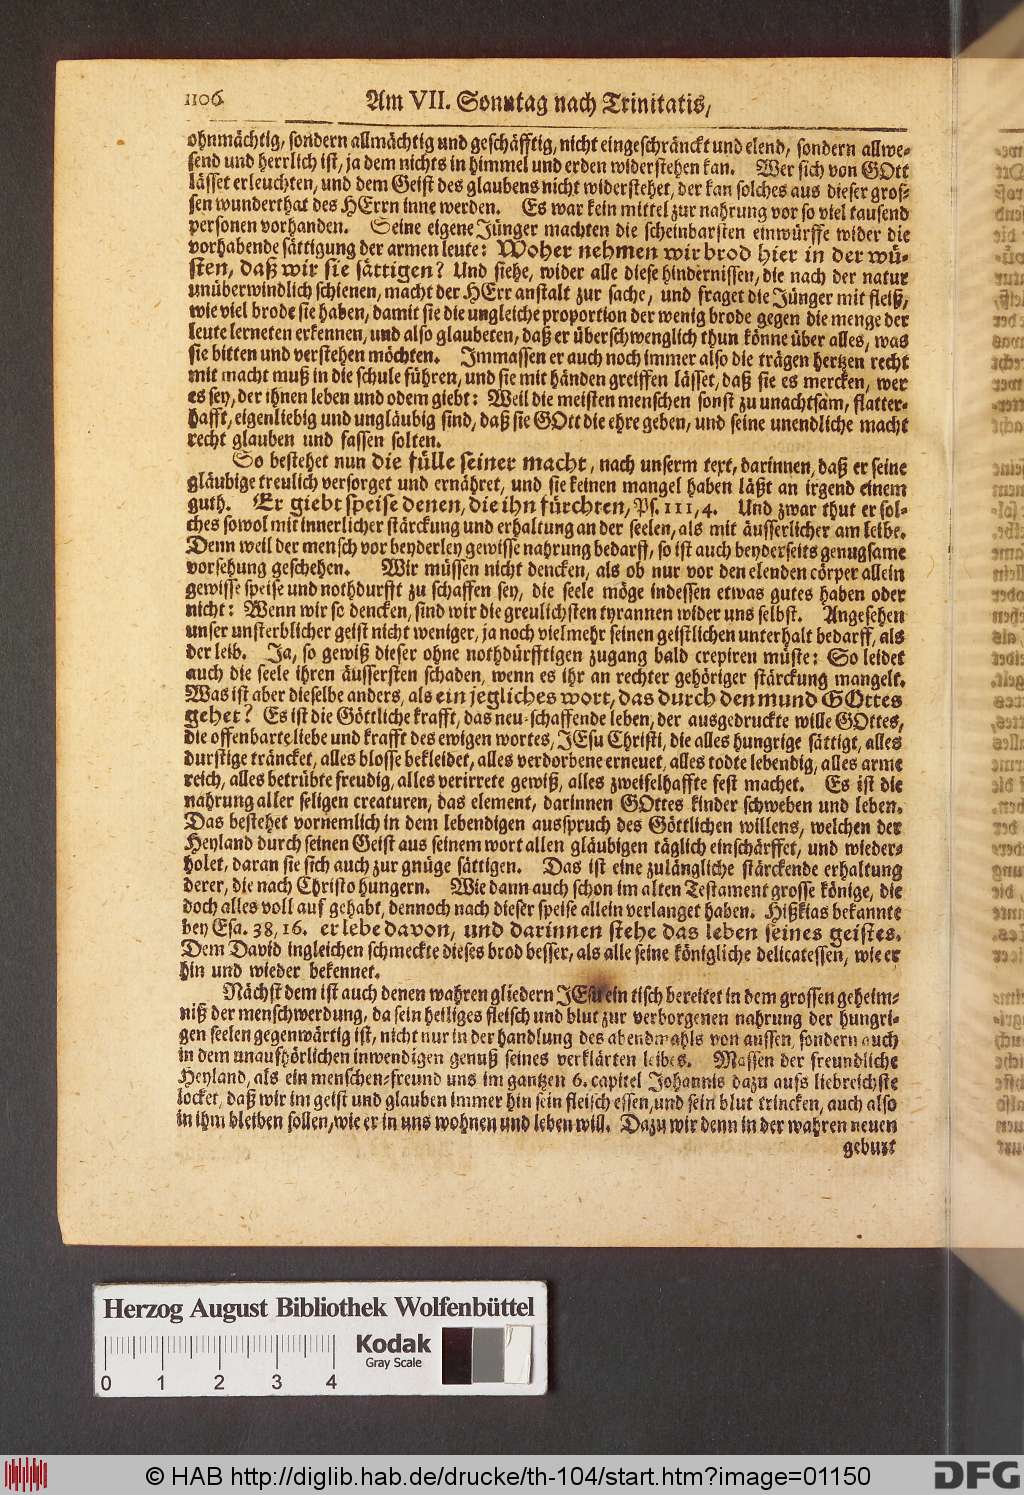 1106
Am VII. Sonntag nach Trinitatis,
ohnmächtig, sondern allmächtig und geschäfftig, nicht eingeschränckt und elend, sondern allwe-
send und herrlich ist, ja dem nichts in himmel und erden widerstehen kan. Wer sich von GOtt
lässet erleuchten, und dem Geist des glaubens nicht widerstehet, der kan solches aus dieser gros-
sen wunderthat des HErrn inne werden. Es war kein mittel zur nahrung vor so viel tausend
personen vorhanden. Seine eigene Jünger machten die scheinbarsten einwürffe wider die
vorhabende sättigung der armen leute: Woher nehmen wir brod hier in der wü-
sten, daß wir sie sättigen? Und siehe, wider alle diese hindernissen, die nach der natur
unüberwindlich schienen, macht der HErr anstalt zur sache, und fraget die Jünger mit fleiß,
wie viel brode sie haben, damit sie die ungleiche proportion der wenig brode gegen die menge der
leute lerneten erkennen, und also glaubeten, daß er überschwenglich thun könne über alles, was
sie bitten und verstehen möchten. Immassen er auch noch immer also die trägen hertzen recht
mit macht muß in die schule führen, und sie mit händen greiffen lässet, daß sie es mercken, wer
es sey, der ihnen leben und odem giebt: Weil die meisten menschen sonst zu unachtsam, flatter-
hafft, eigenliebig und ungläubig sind, daß sie GOtt die ehre geben, und seine unendliche macht
recht glauben und fassen solten.
So bestehet nun die fülle seiner macht, nach unserm text, darinnen, daß er seine
gläubige treulich versorget und ernähret, und sie keinen mangel haben läßt an irgend einem
guth. Er giebt speise denen, die ihn fürchten, Ps. 111, 4. Und zwar thut er sol-
ches sowol mit innerlicher stärckung und erhaltung an der seelen, als mit äusserlicher am leibe.
Denn weil der mensch vor beyderley gewisse nahrung bedarff, so ist auch beyderseits genugsame
vorsehung geschehen. Wir müssen nicht dencken, als ob nur vor den elenden cörper allein
gewisse speise und nothdurfft zu schaffen sey, die seele möge indessen etwas gutes haben oder
nicht: Wenn wir so dencken, sind wir die greulichsten tyrannen wider uns selbst. Angesehen
unser unsterblicher geist nicht weniger, ja noch vielmehr seinen geistlichen unterhalt bedarff, als
der leib. Ja, so gewiß dieser ohne nothdürfftigen zugang bald crepiren müste: So leidet
auch die seele ihren äussersten schaden, wenn es ihr an rechter gehöriger stärckung mangelt.
Was ist aber dieselbe anders, als ein jegliches wort, das durch den mund GOttes
gehet? Es ist die Göttliche krafft, das neu-schaffende leben, der ausgedruckte wille GOttes,
die offenbarte liebe und krafft des ewigen wortes, JEsu Christi, die alles hungrige sättigt, alles
durstige träncket, alles blosse bekleidet, alles verdorbene erneuet, alles todte lebendig, alles arme
reich, alles betrübte freudig, alles verirrete gewiß, alles zweifelhaffte fest machet. Es ist die
nahrung aller seligen creaturen, das element, darinnen GOttes kinder schweben und leben.
Das bestehet vornemlich in dem lebendigen ausspruch des Göttlichen willens, welchen der
Heyland durch seinen Geist aus seinem wort allen gläubigen täglich einschärffet, und wieder-
holet, daran sie sich auch zur gnüge sättigen. Das ist eine zulängliche stärckende erhaltung
derer, die nach Christo hungern. Wie dann auch schon im alten Testament grosse könige, die
doch alles voll auf gehabt, dennoch nach dieser speise allein verlanget haben. Hißkias bekannte
bey Esa. 38, 16. er lebe davon, und darinnen stehe das leben seines geistes.
Dem David ingleichen schmeckte dieses brod besser, als alle seine königliche delicatessen, wie er
hin und wieder bekennet.
Nächst dem ist auch denen wahren gliedern JEsu ein tisch bereitet in dem grossen geheim-
niß der menschwerdung, da sein heiliges fleisch und blut zur verborgenen nahrung der hungri-
gen seelen gegenwärtig ist, nicht nur in der handlung des abendmahls von aussen, sondern auch
in dem unaufhörlichen inwendigen genuß seines verklärten leibes. Massen der freundliche
Heyland, als ein menschen-freund uns im gantzen 6. capitel Johannis dazu aufs liebreichste
locket, daß wir im geist und glauben immer hin sein fleisch essen, und sein blut trincken, auch also
in ihm bleiben sollen, wie er in uns wohnen und leben will. Dazu wir denn in der wahren neuen
geburt
Herzog August Bibliothek Wolfenbüttel
Kodak
Gray Scale
0 1 2 3 4
© HAB http://diglib.hab.de/drucke/th-104/start.htm?image=01150
DFG